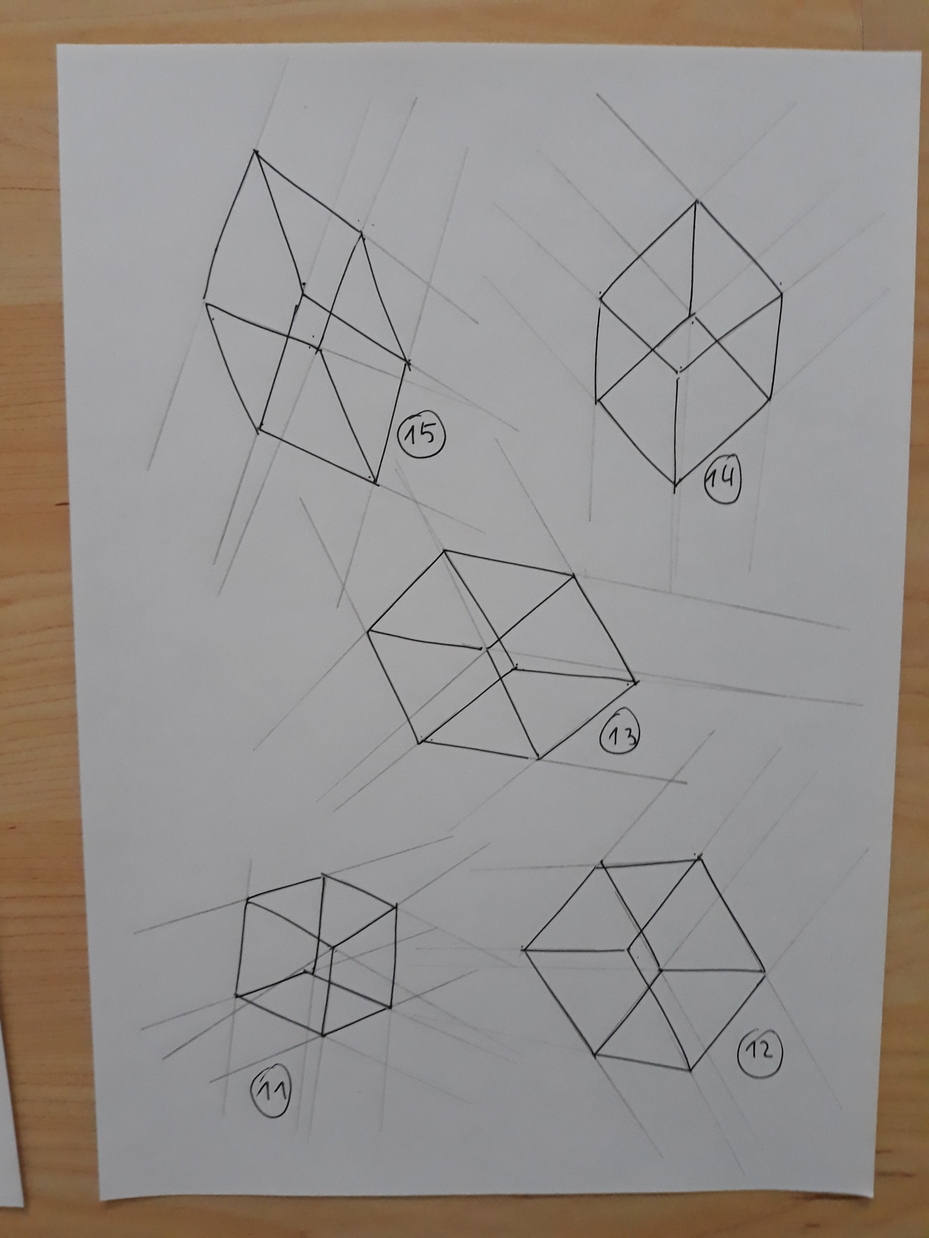 15
14
13
11
12